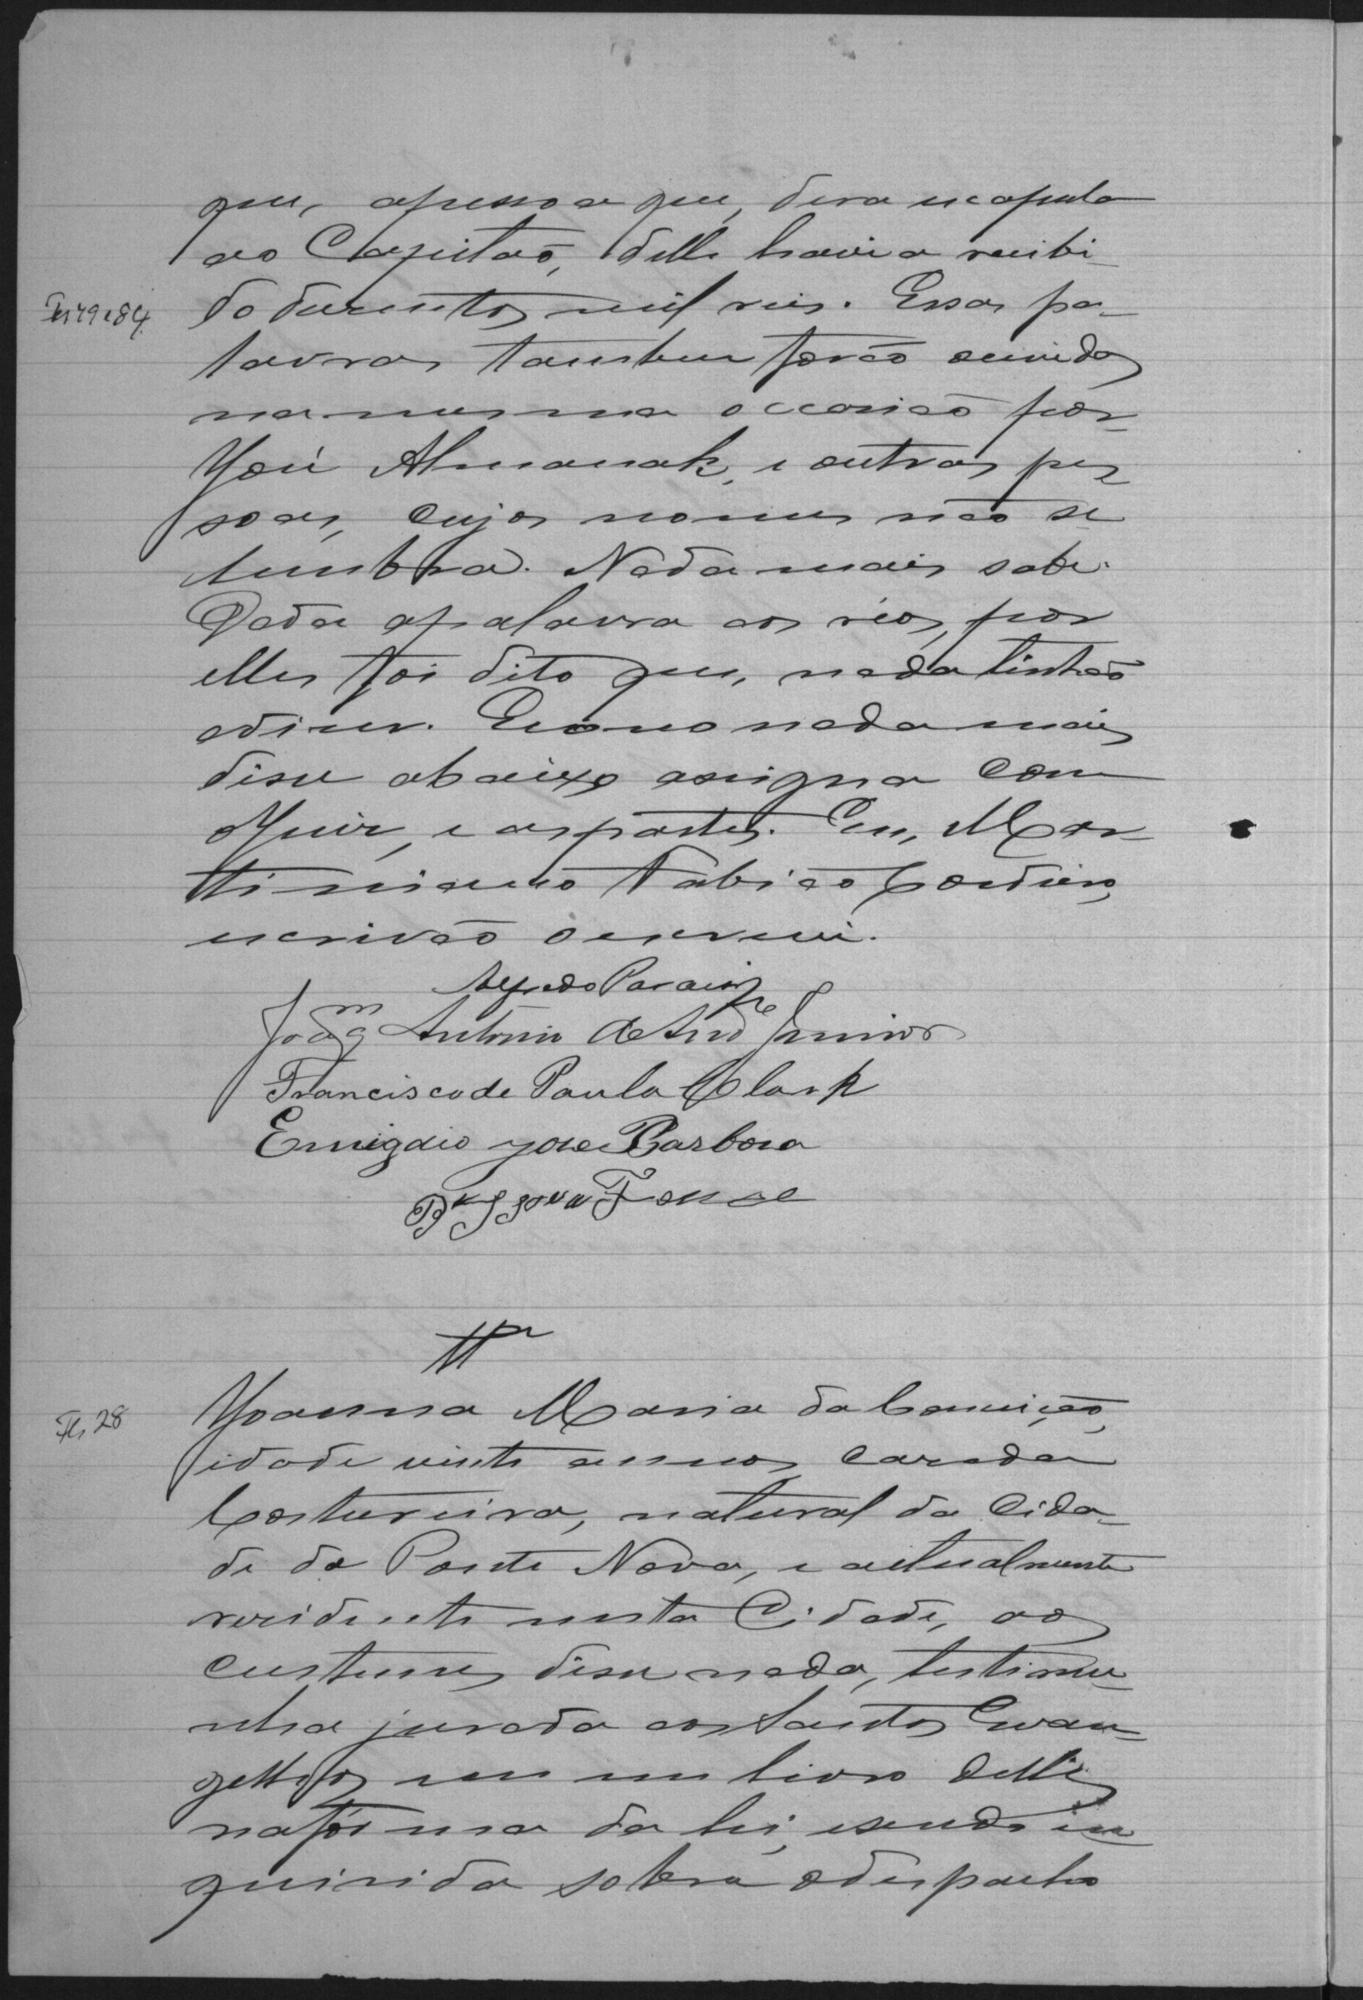 que, apessoa que, dera escapula
ao Capitaõ, delle havia recibi
do dusentos mil reis. Essas pa-
Fls 79 e 84.
lavras tambem forão ouvidas
na mesma occasião por
José Almanak, e outras pes
soas, cujos nomes não se
lembra. Nada mais sabe.
Dada apalavra aos réos, por
elles foi dito que, nada tinhaõ
adiser. Ecomo nada mais
disse abaixo assigna com
oJuiz, e aspartes. Eu, Mar-
timiano Fabião Cordeiro,
escrivão o escrevi.
Alfredo Paraiso
Joaqm Antonio de Andre Junior
Francisco de Paula Clark
Emigdio Jose Barbosa
Tta
Joanna Maria da Conceição,
Fls 28
idade vinte annos, casada
Costureira, natural da Cida-
de da Ponte Nova, e actualmente
residente nesta Cidade, aos
custumes disse nada, testimu-
nha jurada aos Santos Evan-
gelhos em um livro delles
nafórma da lei, esendo in
quirida sobre odespacho